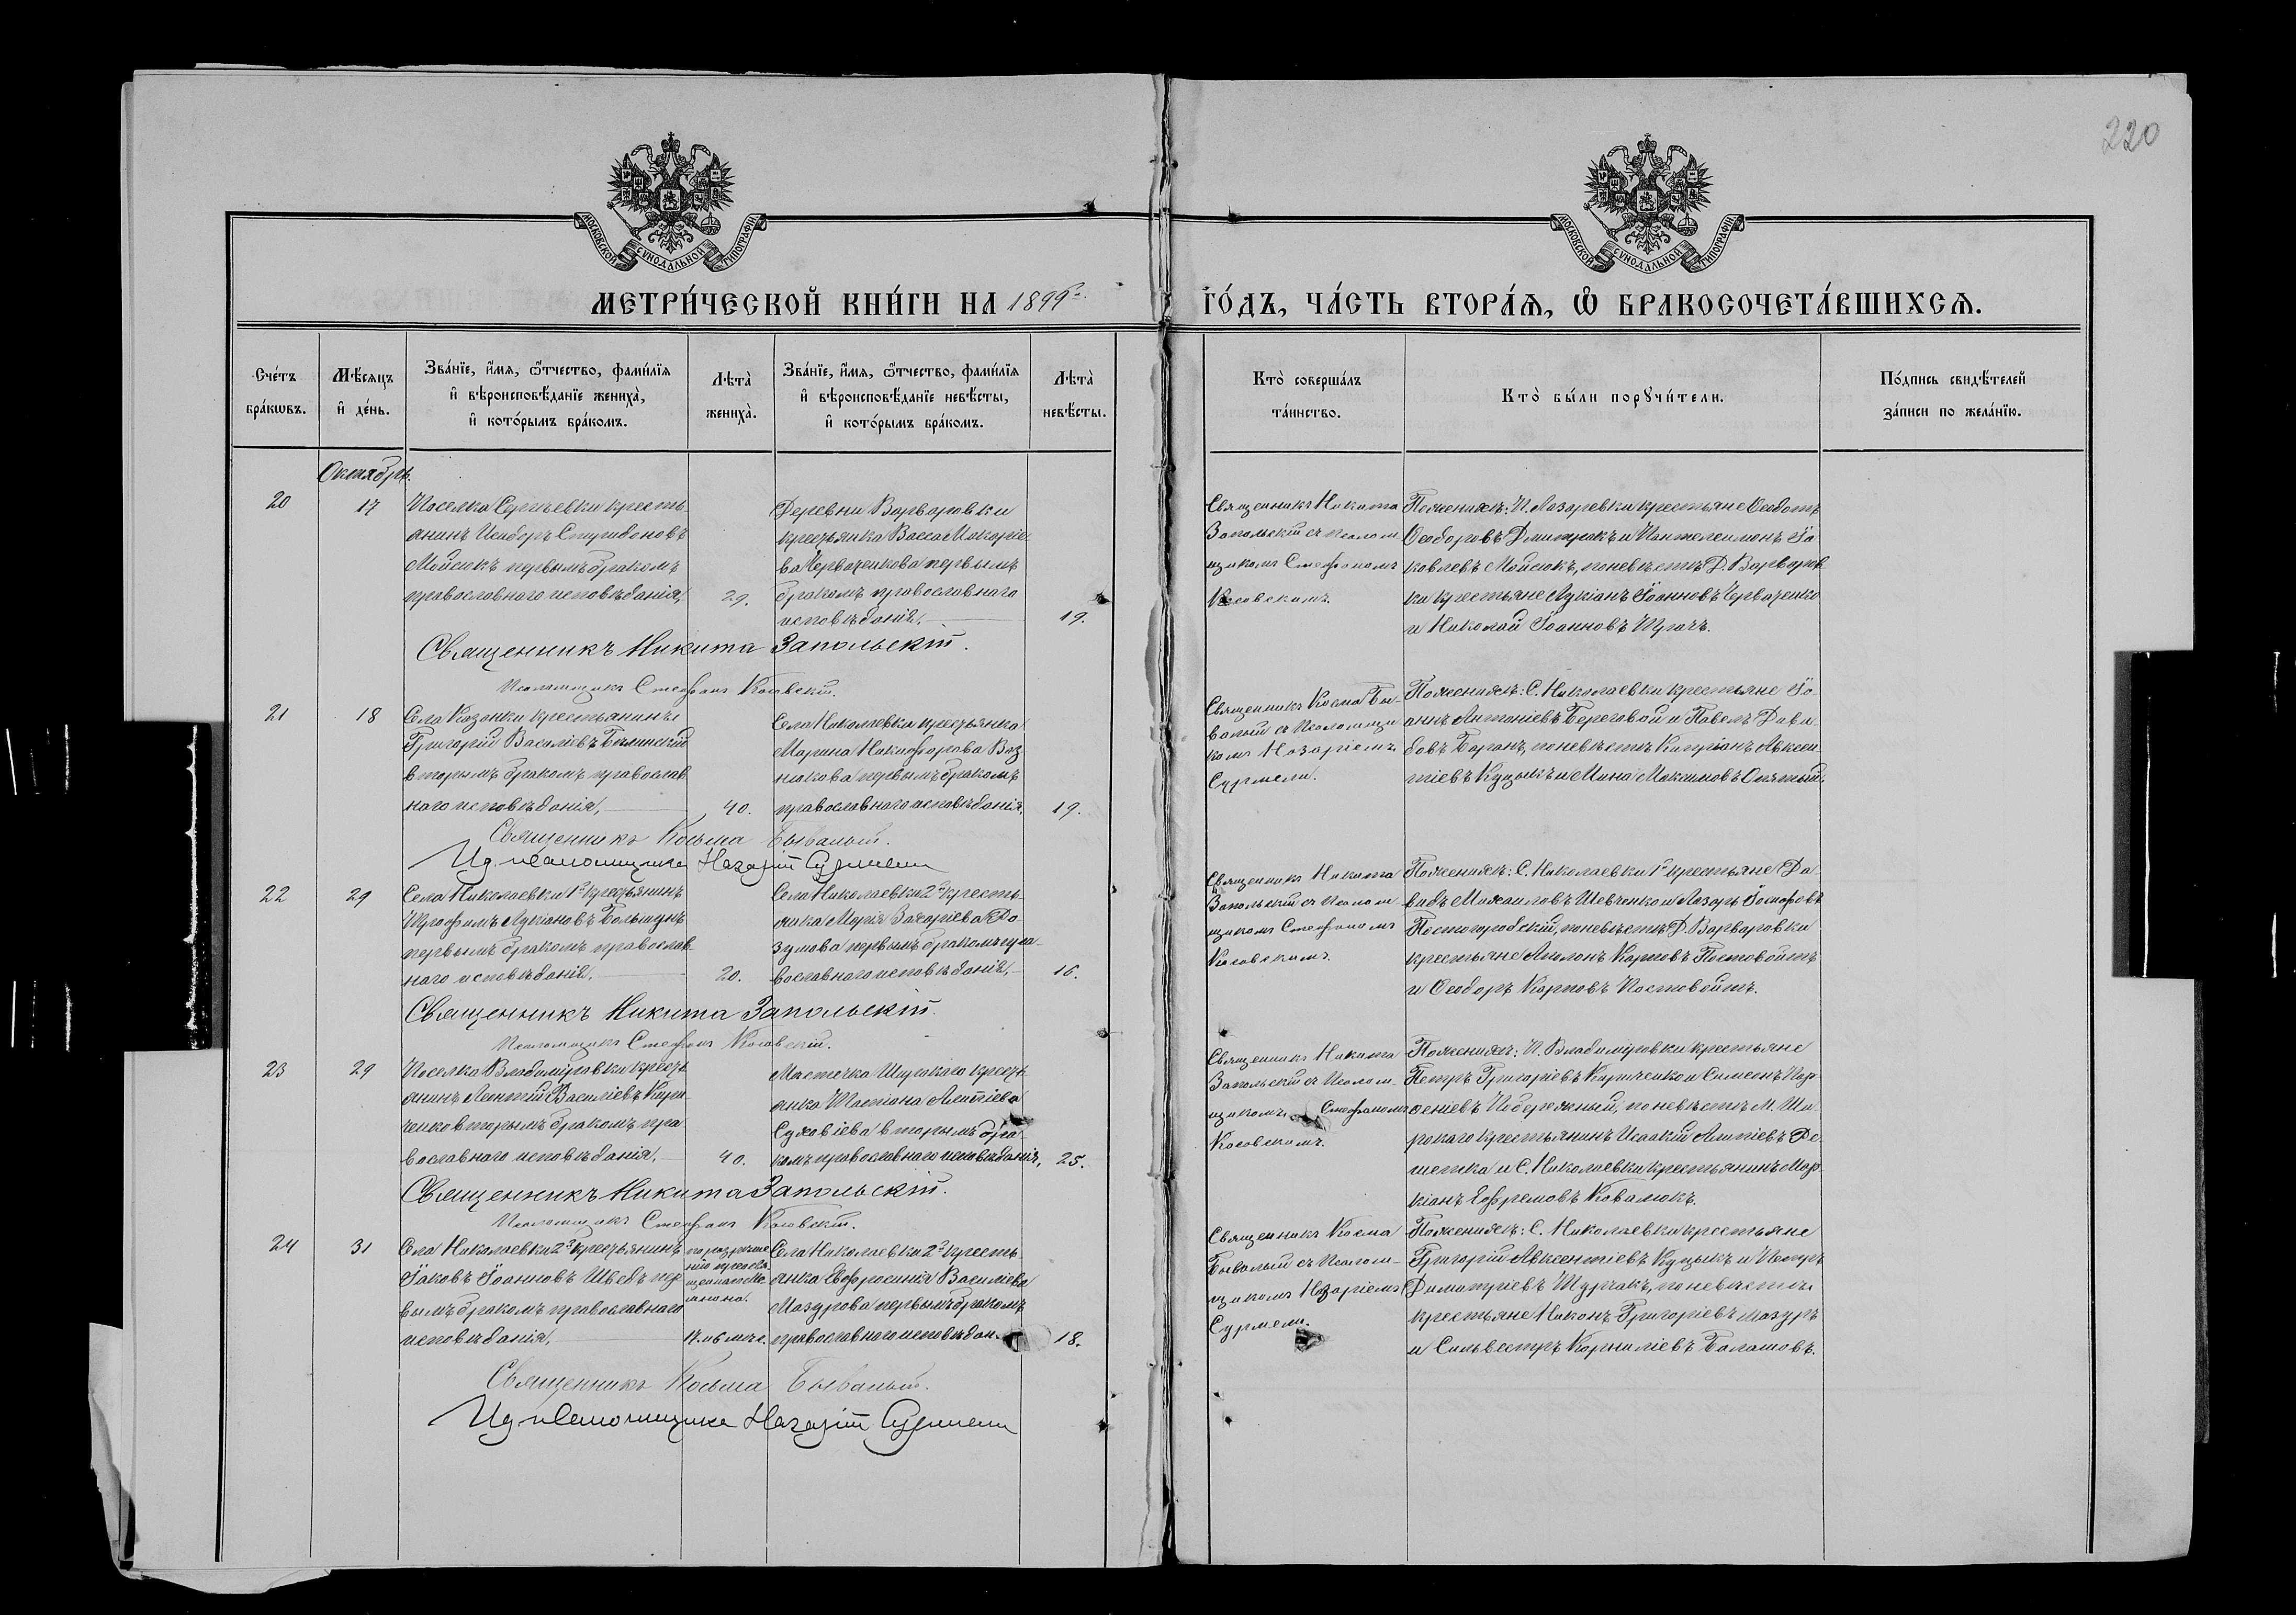 220
МОСКОВСКОЙ СѴНОДАЛЬНОЙ ТИПОГРАФІИ
МОСКОВСКОЙ СѴНОДАЛЬНОЙ ТИПОГРАФІИ
МЕТРИ́ЧЕСКОЙ КНИ́ГИ НА 1899 г.
ГО́ДЪ, ЧА́СТЬ ВТОРА́Ѧ, Ѽ БРАКОСОЧЕТА́ВШИХСѦ.
Сче́тъ
бра́кωвъ.
Мѣ́сяцъ
и҆ де́нь.
Зва́нїе, и҆́мя, ѻ҆́тчество, фами́лїя
и҆ вѣроисповѣ́данїе жениха̀,
и҆ кото́рымъ бра́комъ.
Лѣта̀
жениха̀.
Зва́нїе, и҆́мя, ѻ҆́тчество, фами́лїя
и҆ вѣроисповѣ́данїе невѣ́сты,
и҆ кото́рымъ бра́комъ.
Лѣта̀
невѣ́сты.
Кто̀ соверша́лъ
та́инство.
Кто̀ бы́ли порꙋчи́тели.
По́дпись свидѣ́телей
за́писи по жела́нїю.
Октябрь.
20
17
Поселка Сергѣевки кресть-
янинъ Исидоръ Спиридоновъ
Мойсюкъ первымъ бракомъ
православнаго исповѣданія,
29.
Деревни Варваровки
крестьянка Васса Макаріе-
ва Червоченкова первымъ
бракомъ православнаго
исповѣданія.
19.
Священникъ Никита
Запольскій съ псалом-
щикомъ Стефаномъ
Косовскимъ.
По женихѣ: П. Лазаревки крестьяне Ѳедотъ
Ѳеодоровъ Дмитракъ и Пантелеимонъ Іа-
ковлевъ Мойсюкъ, по невѣстѣ Д. Варваров-
ка крестьяне Лукіанъ Іоанновъ Червоченко
и Николай Іоанновъ Ткачъ.
Священникъ Никита Запольскій.
Псаломщикъ Стефанъ Косовскій.
21
18
Села Казанки крестьянинъ
Григорій Василіевъ Билинскій
вторымъ бракомъ православ-
наго исповѣданія,
40.
Села Николаевки крестьянка
Марина Никифорова Воз-
нюкова первымъ бракомъ
православнаго исповѣданія,
19.
Священникъ Косма Бы-
валый съ Псаломщи-
комъ Назаріемъ
Сурмели.
По женихѣ: С. Николаевки крестьяне Іо-
аннъ Антоніевъ Береговой и Павелъ Дави-
довъ Баранъ, по невѣстѣ Кипріанъ Авксен-
тіевъ Куцыкъ и Мина Максимовъ Опятый.
Священникъ Косьма Бывалый.
Ид псаломщика Назарій Сурмели
22
29
Села Николаевки 1й крестьянинъ
Трофимъ Лукіановъ Болтунъ
первымъ бракомъ православ-
наго исповѣданія,
20.
Села Николаевки 2й кресть-
янка Марія Захаріева Ро-
зумова первымъ бракомъ пра-
вославнаго исповѣданія,
16.
Священникъ Никита
Запольскій съ Псалом-
щикомъ Стефаномъ
Косовскимъ.
По женихѣ: С. Николаевки 1й крестьяне Да-
видъ Михаиловъ Шевченко и Лазарь Іосифовъ
Пестогородскій, по невѣстѣ Д. Варваровки
крестьяне Антонъ Карповъ Постовойтъ
и Ѳеодоръ Карповъ Постовойтъ.
Священникъ Никита Запольскій.
Псаломщикъ Стефанъ Косовскій.
23
29
Поселка Владиміровки кресть-
янинъ Леонтій Василіевъ Кири-
ченко вторымъ бракомъ пра-
вославнаго исповѣданія,
40.
Мѣстечка Широкаго кресть-
янка Татіана Алипіева
Суховіева вторымъ бра-
комъ православнаго исповѣданія,
25.
Священникъ Никита
Запольскій съ Псалом-
щикомъ Стефаномъ
Косовскимъ.
По женихѣ: П. Владиміровки крестьяне
Петръ Григоріевъ Кириченко и Симеонъ Пар-
ѳеніевъ Побережный, по невѣстѣ М. Ши-
рокаго крестьянинъ Исаакій Алипіевъ Ре-
шетка и С. Николаевки крестьянинъ Мар-
кіанъ Ефремовъ Ковалюкъ.
Священникъ Никита Запольскій.
Псаломщикъ Стефанъ Косовскій.
24
31
Села Николаевки 2й крестьянинъ
Іаковъ Іоанновъ Шведъ пер-
вымъ бракомъ православнаго
исповѣданія,
по разрѣше-
нію преосвя-
щеннаго
17. и 6 мѣс.
Села Николаевки 2й кресть-
янка Евфросинія Василіева
Мазурова первымъ бракомъ
православнаго исповѣдан
18.
Священникъ Косма
Бывалый съ Псалом-
щикомъ Назаріемъ
Сурмели.
По женихѣ: С. Николаевки крестьяне
Григорій Авксентіевъ Куцыкъ и Петръ
Димитріевъ Турчакъ, по невѣстѣ
крестьяне Никонъ Григоріевъ Мазуръ
и Сильвестръ Корниліевъ Балашовъ.
Священникъ Косьма Бывалый.
Ид псаломщика Назарій Сурмели